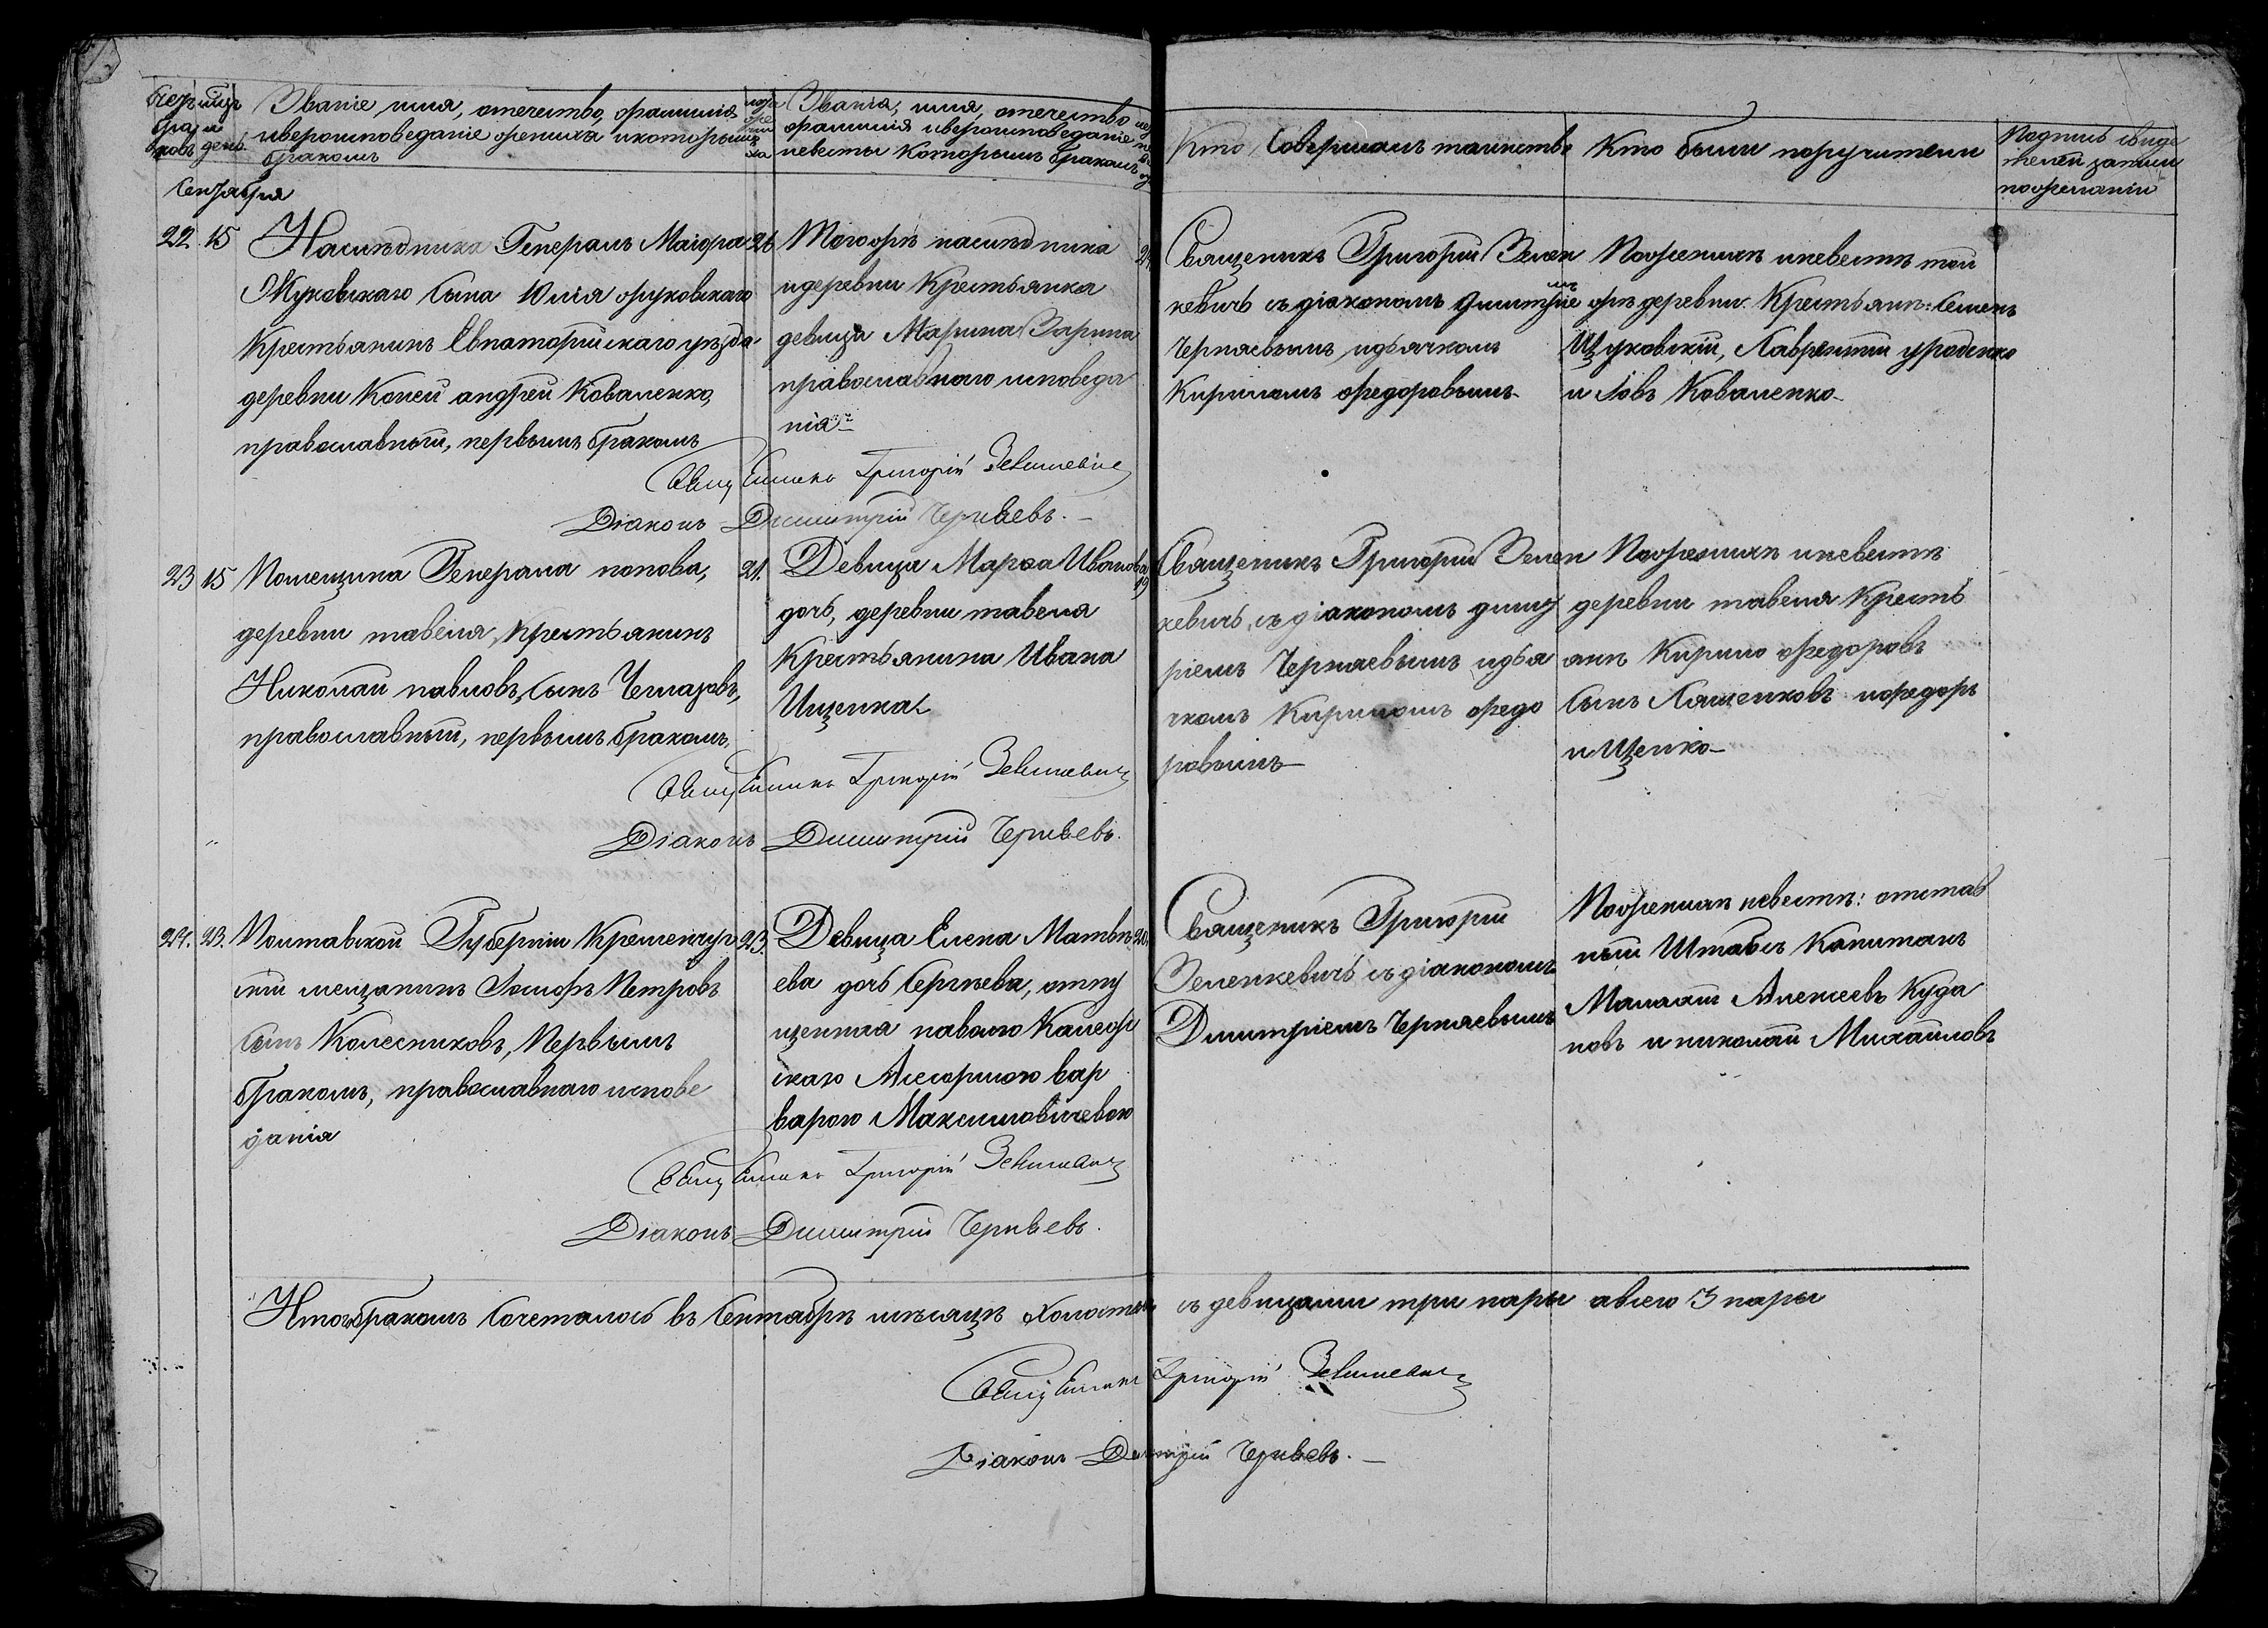 Звание имя, отечество, фамилия
ивероисповедание жениха икоторым
браком
Звания, имя, отечество
фамилия ивероисповедание
невесты Которым браком
Кто Совершалъ таинство
Кто были поручители
Подпись свиде
телей записи
пожелании
Сентября
22. 15 Наследника Генералъ Маиора
Жуковскаго Сына Юлия жуковскаго
Крестьянинъ Евпаторийскаго уѣзда
деревни андрей Коваленко,
православный, первымъ бракомъ
26 Тогожъ наследника
идеревни Крестьянка
девица Марина Зарина
православнаго исповеда
ния
Священикъ Григорий Зелен
кевичъ съ діакономъ Димитрие
мъ
Черняевымъ, идьячкомъ
Кириломъ Федоровымъ
Пожениху иневесте той
жъ деревни Крестьяне: Семенъ
Щуковский, Лаврентий
и Іовъ Коваленко
Священникъ Григорій Зенкевичъ
Діаконъ Димитрій Черняевъ.
23 15 Помещика Генерала попова,
деревни тавеля, Крестьянинъ
Николай павловъ, Сынъ
православный, первымъ бракомъ
21. Девица Марфа Иванова
дочь, деревни тавеля
Крестьянина Ивана
Ищенка
19
Священикъ Григорий Зелен
кевичъ, съ діакономъ димит
ріемъ Черняевымъ идья
чкомъ Кириломъ федо
ровымъ
Пожениху иневесте
деревни тавеля Кресть
яне Кирило федоровъ
Сынъ Ляшенковъ ифедоръ
ищенко
Священникъ Григорій Зенкевичъ
Діаконъ Димитрій Черняевъ.
24. 23. Полтавской Губерніи Кременчуг
ский мещанинъ Іосифъ Петровъ
Сынъ Колесниковъ, Первымъ
бракомъ, православнаго испове
дания
23. Девица Елена Матвѣ
ева дочь Сергѣева, отпу
щенная наволю Колеж
скою Асесоршою вар
варою Максимовичевою
20
Священикъ Григорий
Зеленкевичъ съ діакономъ
Димитріемъ Черняевымъ
Пожениху невесте: отстав
ный Штабсъ Капитанъ
Алексеевъ Куда
новъ и николай Михайловъ
Священникъ Григорій Зенкевичъ
Діаконъ Димитрій Черняевъ.
Итого бракомъ Сочеталось въ Сентябре месяце Холостыхъ съ девицами три пары авсего 3 пары
Священникъ Григорій Зенкевичъ
Діаконъ Димитрій Черняевъ.